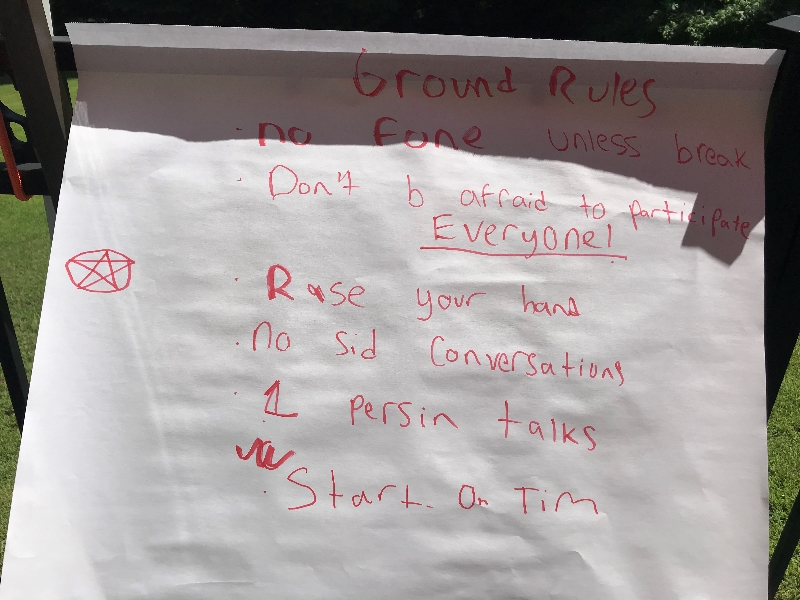 Ground Rules
· no Fone unless break
· Don't b afraid to participate
Everyone!
· Rase your hand
· no sid conversations
· 1 persin talks
· Start On Tim